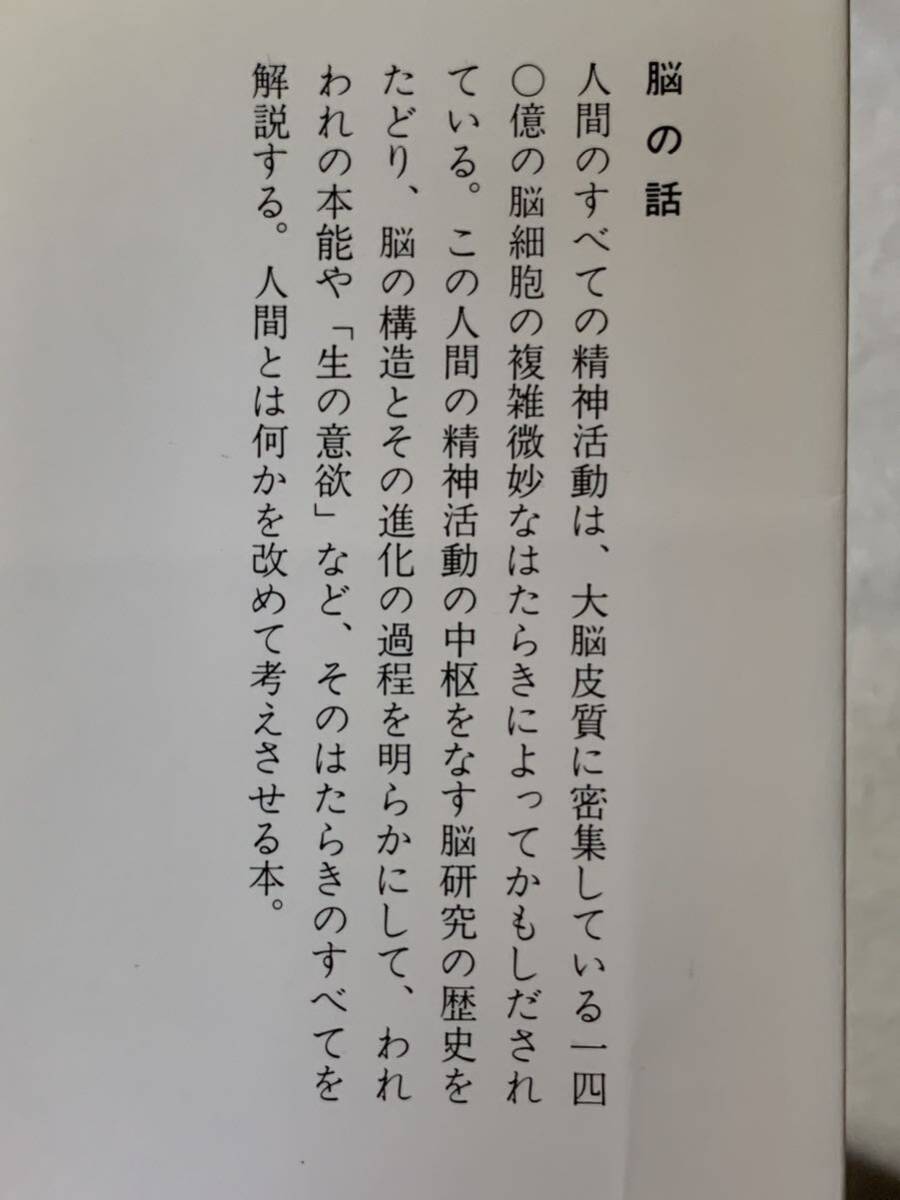 脳の話
人間のすべての精神活動は、大脳皮質に密集している一四
〇億の脳細胞の複雑微妙なはたらきによってかもしだされ
ている。この人間の精神活動の中枢をなす脳研究の歴史を
たどり、脳の構造とその進化の過程を明らかにして、われ
われの本能や「生の意欲」など、そのはたらきのすべてを
解説する。人間とは何かを改めて考えさせる本。